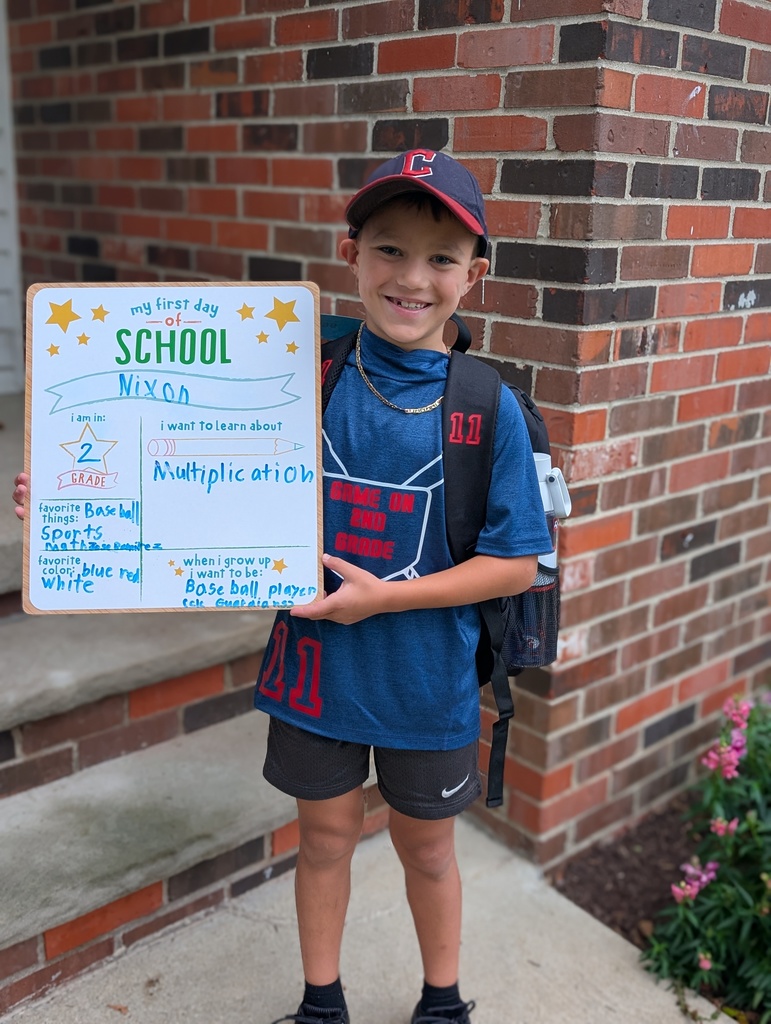 C
my first day
of
SCHOOL
Nixon
i am in:
2
GRADE
i want to learn about
Multiplication
favorite things: Baseball
Sports
Math Jose Ramirez
favorite color: blue red
white
when i grow up
i want to be:
Baseball player
Guardians
11
GAME ON
2ND
GRADE
11